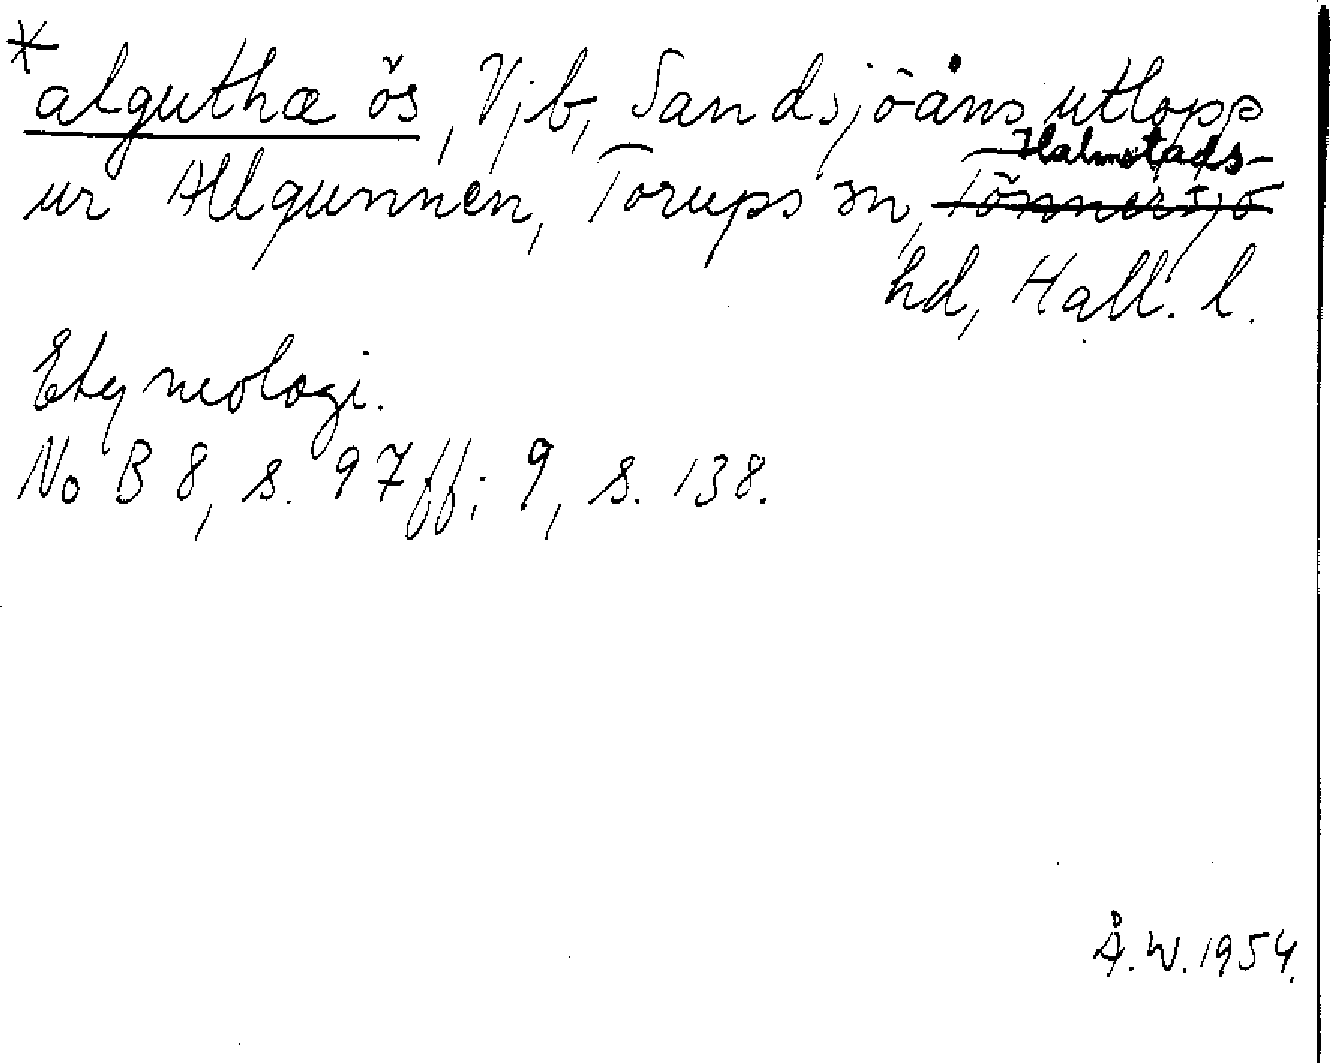 * alguthæ ōs, Vjb, Sandsjöåns utlopp
Halmstads-
ur Allgunnen, Torups sn, Tönnersjö
hd, Hall. l.
Etymologi.
NoB 8, s. 97 ff; 9, s. 138.
Å.W. 1954.